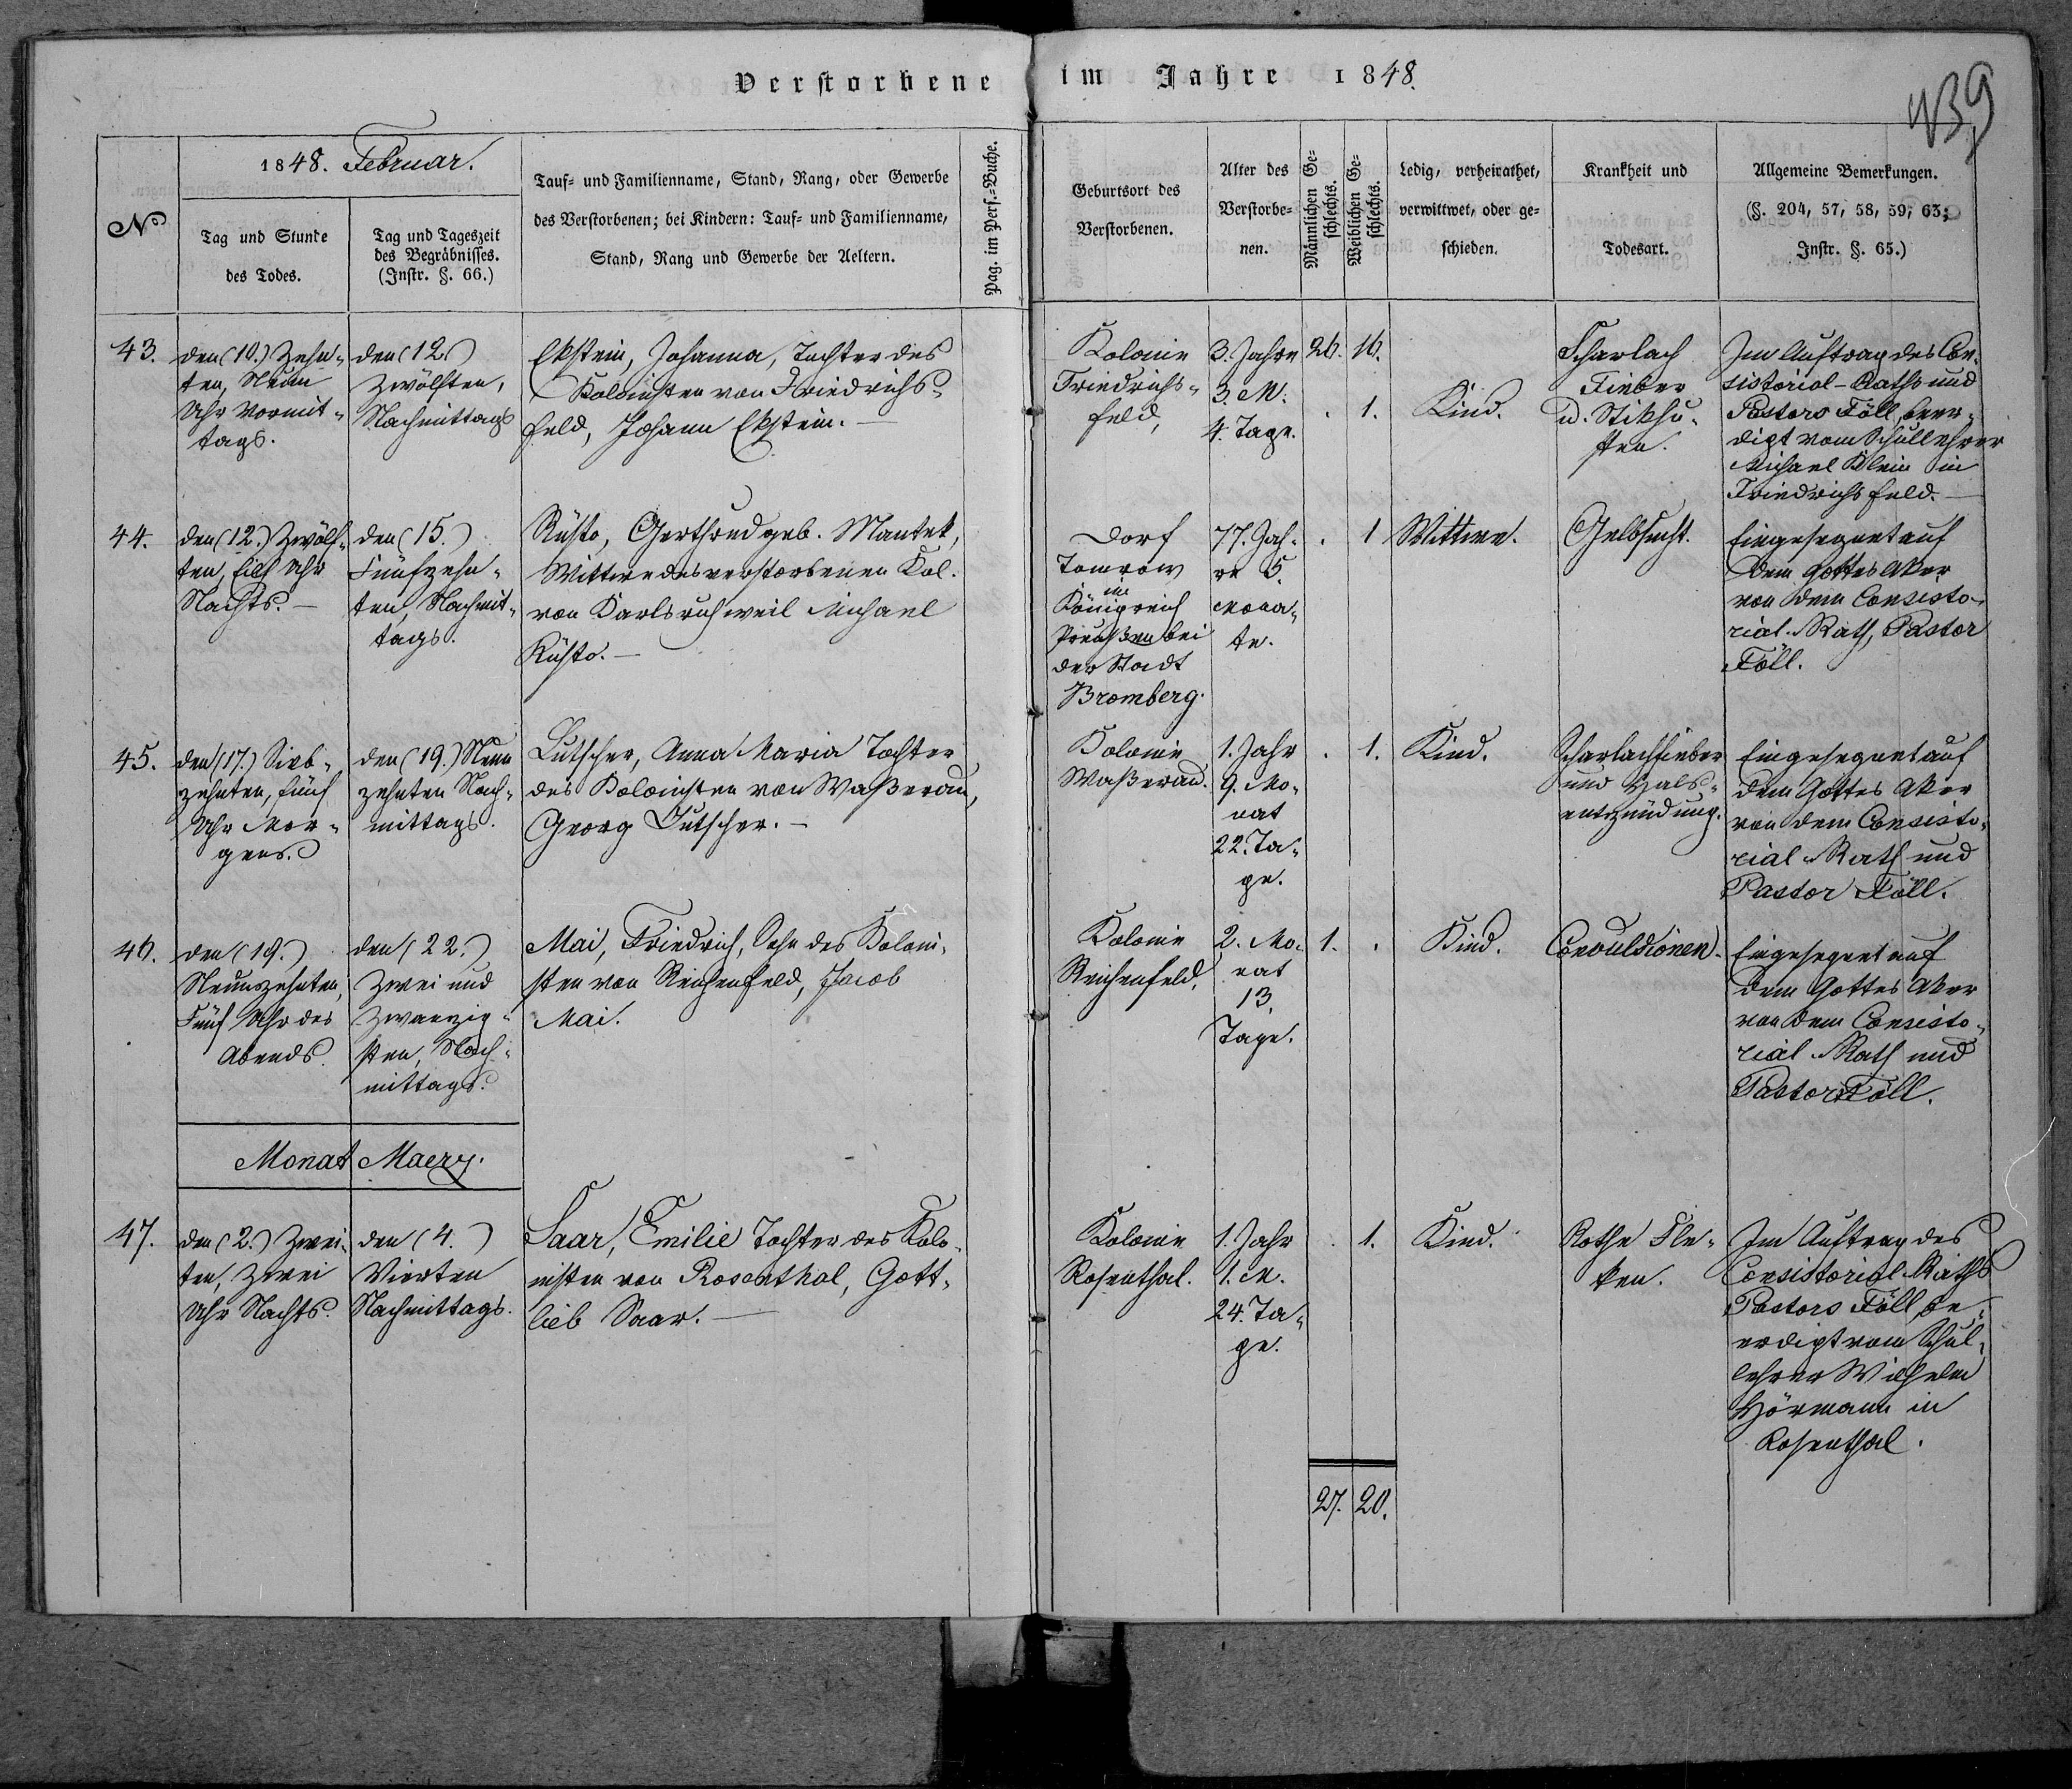 Verstorbene im Jahre 1848.
439
No
1848. Februar.
Tag und Stunde
des Todes.
Tag und Tageszeit
des Begräbnisses.
(Instr. §. 66.)
Tauf- und Familienname, Stand, Rang, oder Gewerbe
des Verstorbenen; bei Kindern: Tauf- und Familienname,
Stand, Rang und Gewerbe der Aeltern.
Pag. im Pers.-Buche.
Geburtsort des
Verstorbenen.
Alter des
Verstorbe-
nen.
Männlichen Ge-
schlechts.
Weiblichen Ge-
schlechts.
Ledig, verheirathet,
verwittwet, oder ge-
schieden.
Krankheit und
Todesart.
Allgemeine Bemerkungen.
(§. 204, 57, 58, 59, 63;
Instr. §. 65.)
43.
den (10.) Zehn-
ten, Neun
Uhr Vormit-
tags.
den (12.)
Zwölften,
Nachmittags
Ekstein, Johanna, Tochter des
Kolonisten von Friedrichs-
feld, Johann Ekstein. —
Kolonie
Friedrichs-
feld,
3. Jahre
3. M.
4. Tage.
26. 16.
. 1.
Kind.
Scharlach
Fieber
u. Stikhu-
sten.
Im Auftrag des Con-
sistorial-Raths und
Pastors Föll, beer-
digt vom Schullehrer
Michael Klein in
Friedrichsfeld. —
44.
den (12.) Zwölf-
ten, Eilf Uhr
Nachts. —
den (15.)
Fünfzehn-
ten, Nachmit-
tags.
Rüsto, Gerthrud geb. Mantek,
Wittwe des verstorbenen Kol.
von Karlsruh weil Michael
Rüsto. —
Dorf
Tomrow
im
Königreich
Preußen bei
der Stadt
Bromberg.
77. Jah-
re 5.
Mona-
te.
. 1
Wittwe.
Gelbsucht.
Eingesegnet auf
dem Gottes Aker
von dem Consisto-
rial-Rath, Pastor
Föll.
45.
den (17.) Sieb-
zehnten, fünf
Uhr Mor-
gens.
den (19.) Neun
zehnten Nach-
mittags.
Lutscher, Anna Maria Tochter
des Kolonisten von Waßerau,
Georg Lutscher. —
Kolonie
Waßerau.
1. Jahr
9. Mo-
nat
22. Ta-
ge.
. 1.
Kind.
Scharlachfieber
und Hals-
entzündung.
Eingesegnet auf
dem Gottes Aker
von dem Consisto-
rial-Rath und
Pastor Föll.
46.
den (19.)
Neunzehnten,
Fünf Uhr des
Abends.
den (22.)
Zwei und
Zwanzig-
sten, Nach-
mittags.
Mai, Friedrich, Sohn des Koloni-
sten von Reichenfeld, Jacob
Mai.
Kolonie
Reichenfeld,
2. Mo-
nat
13.
Tage.
1. .
Kind.
Convuldionen.
Eingesegnet auf
dem Gottes Aker
von dem Consisto-
rial-Rath und
Pastor Föll.
Monat Maerz.
47.
den (2.) Zwei-
ten, Zwei
Uhr Nachts.
den (4.)
Vierten
Nachmittags.
Saar, Emilie Tochter des Kolo-
nisten von Rosenthal, Gott-
lieb Saar. —
Kolonie
Rosenthal.
1. Jahr
1. M.
24. Ta-
ge.
. 1.
Kind.
Rothe Fle-
ken.
Im Auftrag des
Consistorial-Raths
Pastors Föll, be-
erdigt vom Schul-
lehrer Wilhelm
Hörmann in
Rosenthal.
27. 20.